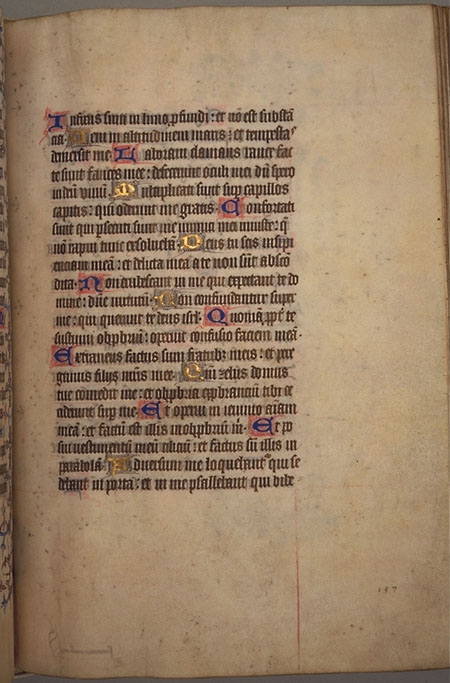 Infixus sum in limo ꝓfundi: et nō est substā
cia. Veni in altitudinem maris: et tempestas
demersit me. Laboraui clamans rauce fac
te sunt fauces mee: defecerunt oculi mei dū spero
in dūm
Multiplicati sunt suꝑ capillos
capitis: qui oderunt me gratis. Confortati
sunt qui ꝑsecuti sunt me inimici mei iniuste: q̄
nō rapui tunc exsoluebā. Deus tu scis insipi
enciam meā: et delicta mea a te non sūt absco
dita. Non erubescant in me qui expectant te do
mine: dn̄e virtutū. Non confundantur super
me: qui querunt te deus isrl. Quoniā ꝓpt̄ te
sustinui obꝓbriū: operuit confusio faciem meā.
Extraneus factus sum fratribꝫ meis: et pere
grinus filijs mr̄is mee. Qm̄ zelus domus
tue comedit me: et obꝓbria exprobrancium tibi ce
ciderunt suꝑ me. Et operui in ieiunio aīam
meā: et factū est illis in obꝓbriū m̄. Et po
sui vestimentū meū ciliciū: et factus sū illis in
parabolā. Aduersum me loquebantʳ qui se
debant in porta: et in me psallebant qui bibe
137